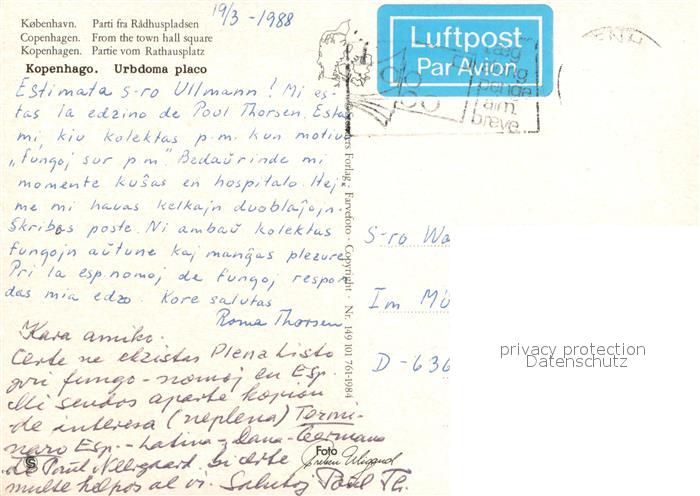 19/3 - 1988
København. Parti fra Rådhuspladsen
Copenhagen. From the town hall square
Kopenhagen. Partie vom Rathausplatz
Kopenhago. Urbdoma placo
Estimata s-ro Ullmann! Mi es-
tas la edzino de Poul Thorsen. Estas
mi, kiu kolektas p.m. kun motivo
„fungoj sur p.m." Bedaŭrinde mi
momente kuŝas en hospitalo. Hej-
me mi havas kelkajn duoblaĵojn.
Skribos poste. Ni ambaŭ kolektas
fungojn aŭtune kaj manĝas plezure
Pri la esp.nomoj de fungoj respon-
das mia edzo. Kore salutas
Roma Thorsen
Kara amiko.
Certe ne ekzistas Plena Listo
pri fungo-nomoj en Esp.
Mi sendos aparte kopion
de interesa (neplena) Termi-
naro Esp.-Latina-Dana-Germana
de Paul Neergaard. Ĝi certe
multe helpos al vi. Salutoj Poul Th.
Forlag, Farvefoto - Copyright - Nr. 149 101 761-1984
Foto
S
Luftpost
Par Avion
læg
penge
alm.
breve
S-ro Wa
Im Mü
D-636
privacy protection
Datenschutz